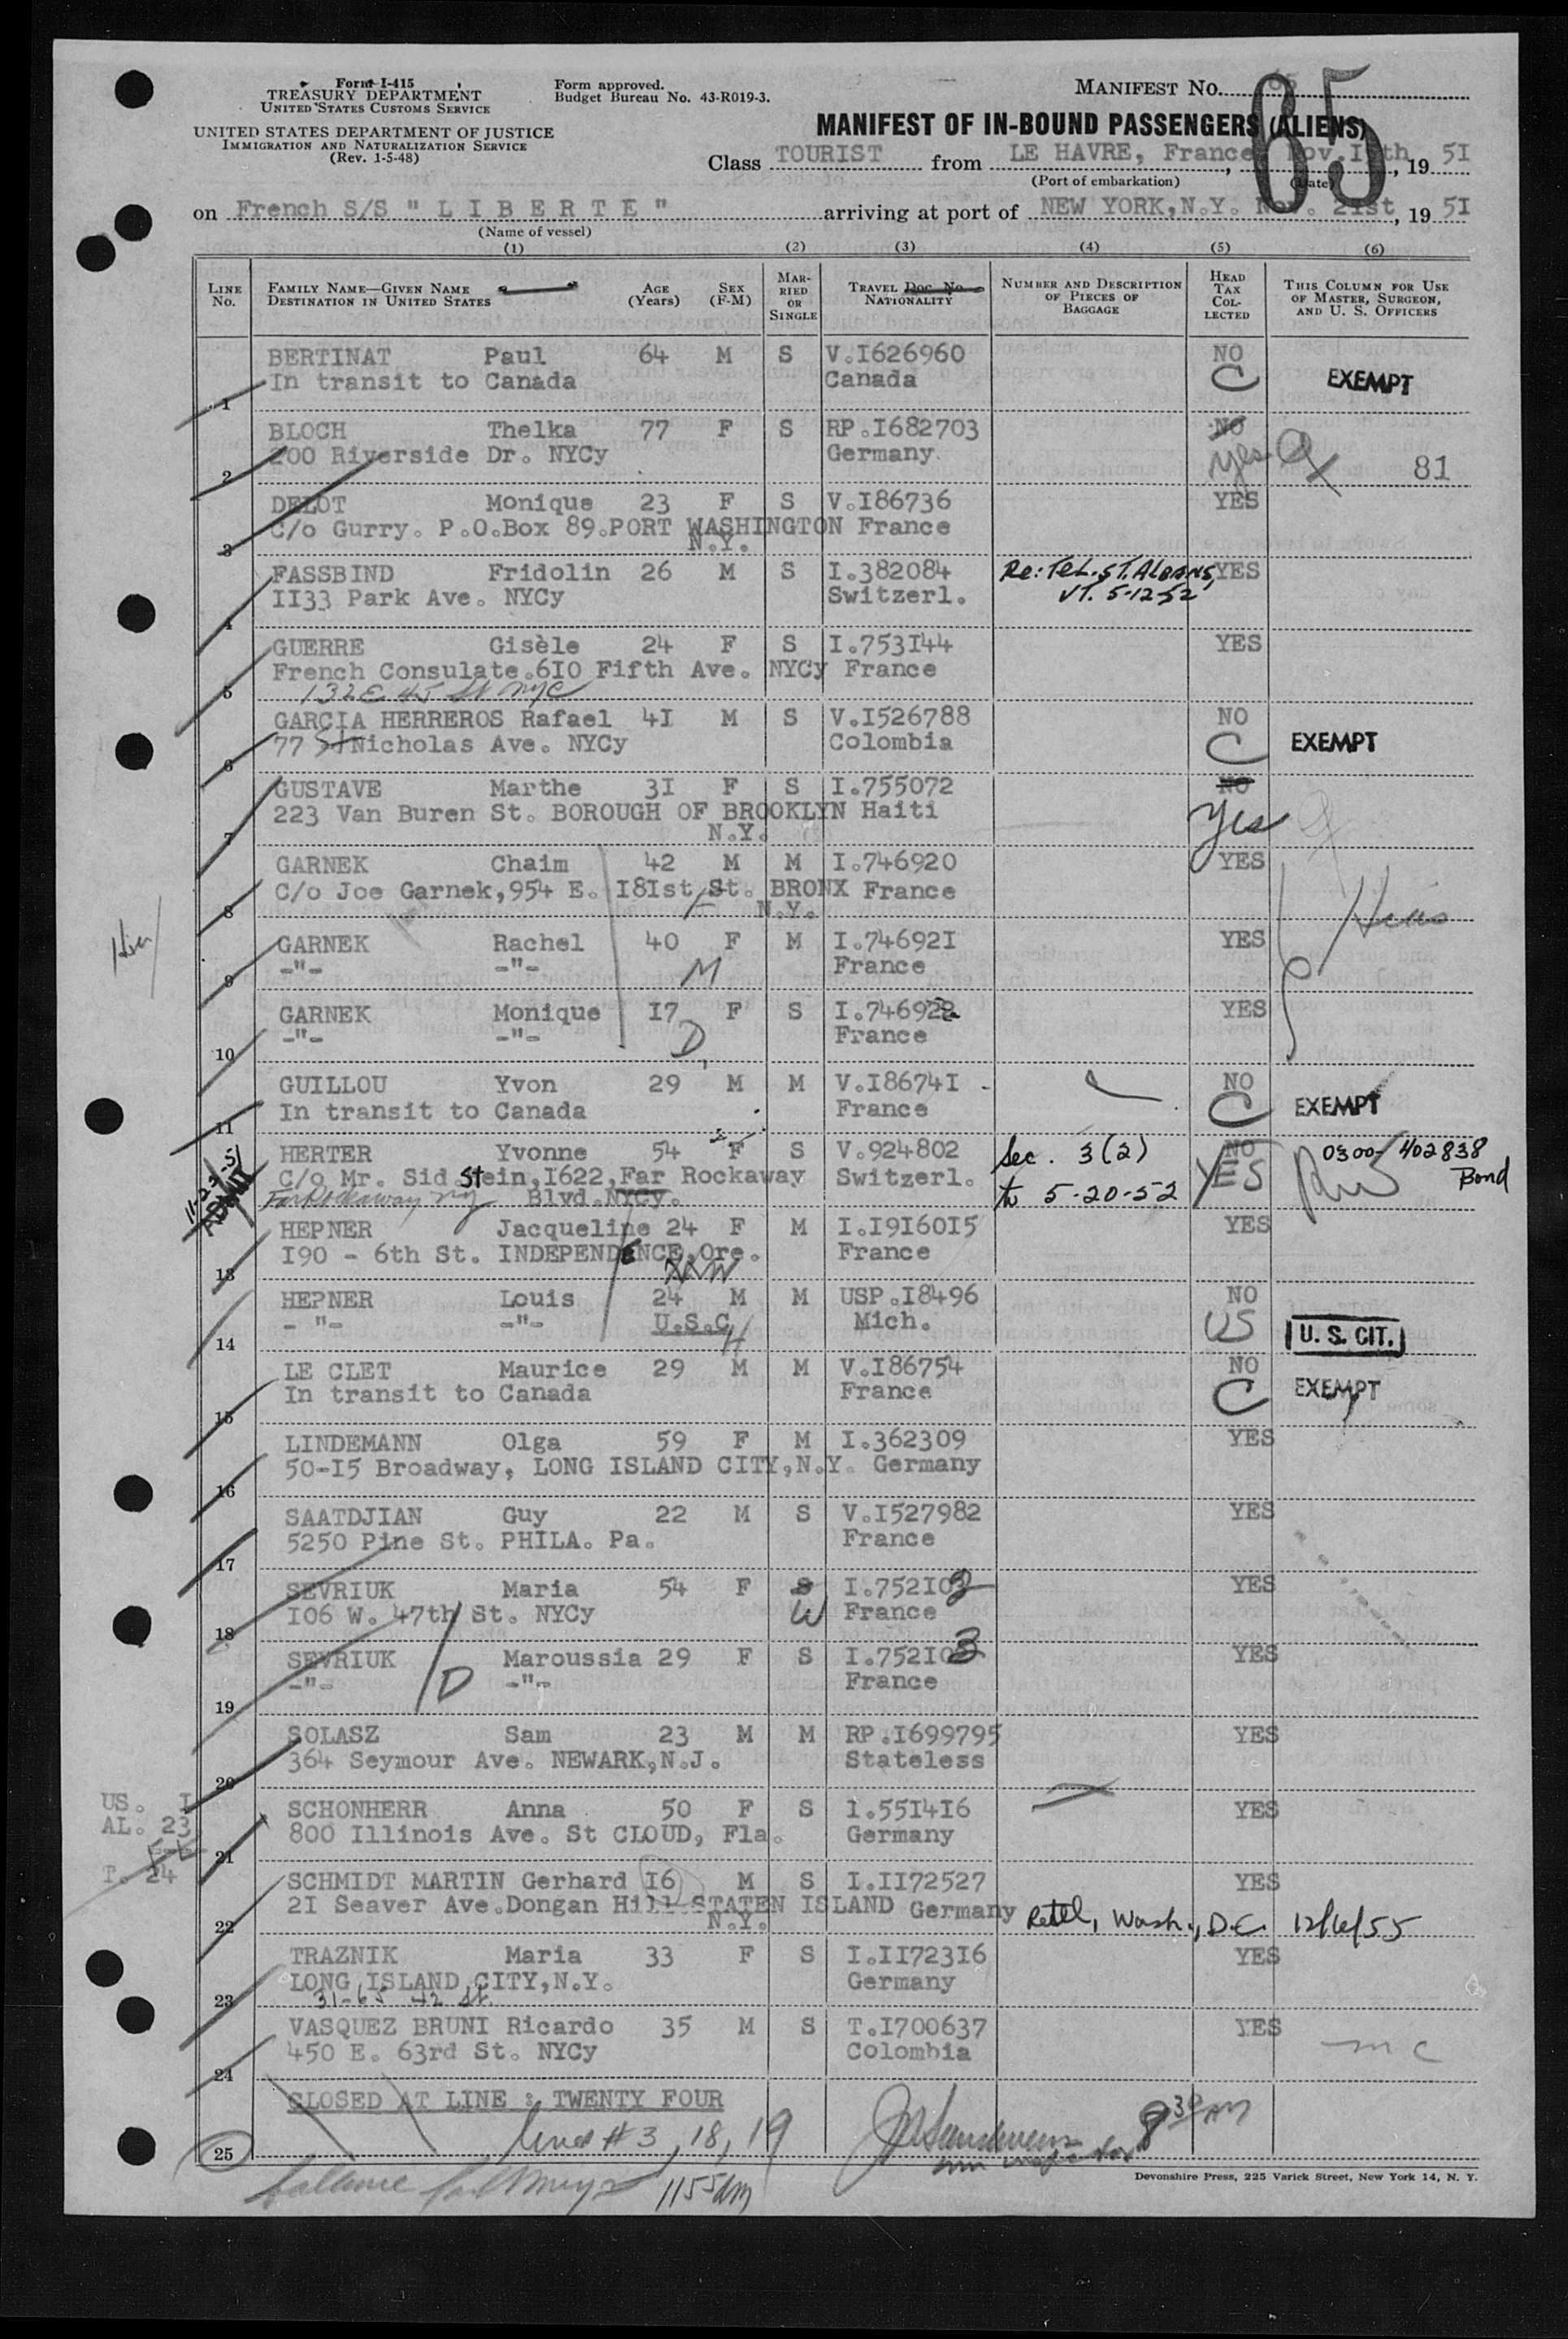 Form I-415
TREASURY DEPARTMENT
UNITED STATES CUSTOMS SERVICE
UNITED STATES DEPARTMENT OF JUSTICE
IMMIGRATION AND NATURALIZATION SERVICE
(Rev. 1-5-48)
Form approved.
Budget Bureau No. 43-R019-3.
MANIFEST NO. 65
MANIFEST OF IN-BOUND PASSENGERS (ALIENS)
Class TOURIST from LE HAVRE, France, Nov. th, 19 5I
(Port of embarkation) (Date)
on French S/S " L I B E R T E " arriving at port of NEW YORK,N.Y. Nov. 2Ist, 19 5I
(Name of vessel)
(1) (2) (3) (4) (5) (6)
LINE NO. FAMILY NAME—GIVEN NAME DESTINATION IN UNITED STATES AGE (Years) SEX (F-M) MARRIED OR SINGLE TRAVEL Doc. No. NATIONALITY NUMBER AND DESCRIPTION OF PIECES OF BAGGAGE HEAD TAX COLLECTED THIS COLUMN FOR USE OF MASTER, SURGEON, AND U. S. OFFICERS
BERTINAT Paul 64 M S V.I626960 NO
1 In transit to Canada Canada C EXEMPT
BLOCH Thelka 77 F S RP.I682703 NO
2 200 Riverside Dr. NYCy Germany yes 81
DELOT Monique 23 F S V.I86736 YES
3 C/o Gurry. P.O.Box 89.PORT WASHINGTON France
N.Y.
FASSBIND Fridolin 26 M S I.382084 Re: Tel. ST. ALBANS, YES
4 II33 Park Ave. NYCy Switzerl. VT. 5-12-52
GUERRE Gisèle 24 F S I.753I44 YES
5 French Consulate.6I0 Fifth Ave. NYCy France
132 E 45 St nyc
GARCIA HERREROS Rafael 4I M S V.I526788 NO
6 77 St Nicholas Ave. NYCy Colombia C EXEMPT
GUSTAVE Marthe 3I F S I.755072 NO
7 223 Van Buren St. BOROUGH OF BROOKLYN Haiti Yes
N.Y.
GARNEK Chaim 42 M M I.746920 YES
8 C/o Joe Garnek,954 E. I8Ist St. BRONX France
N.Y.
GARNEK Rachel 40 F M I.74692I YES
9 -"- -"- M France
GARNEK Monique I7 F S I.746922 YES
10 -"- -"- D France
GUILLOU Yvon 29 M M V.I8674I NO
11 In transit to Canada France C EXEMPT
HERTER Yvonne 54 F S V.924802 Sec. 3(2) NO 0300-402838
11-23-51 ADMIT C/o Mr. Sid Stein,I622,Far Rockaway Switzerl. to 5-20-52 YES Bond
Far Rockaway ny Blvd.NYCy.
HEPNER Jacqueline 24 F M I.I9I60I5 YES
13 I90 - 6th St. INDEPENDENCE,Ore. France
W
HEPNER Louis 24 M M USP.I8496 NO
14 - "- -"- U.S.C. H Mich. US U. S. CIT.
LE CLET Maurice 29 M M V.I86754 NO
15 In transit to Canada France C EXEMPT
LINDEMANN Olga 59 F M I.362309 YES
16 50-I5 Broadway, LONG ISLAND CITY,N.Y. Germany
SAATDJIAN Guy 22 M S V.I527982 YES
17 5250 Pine St. PHILA. Pa. France
SEVRIUK Maria 54 F S I.752I02 YES
18 I06 W. 47th St. NYCy W France
SEVRIUK Maroussia 29 F S I.752I03 YES
19 -"- D -"- France
SOLASZ Sam 23 M M RP.I699795 YES
20 364 Seymour Ave. NEWARK,N.J. Stateless
US. I
AL. 23
T. 24
SCHONHERR Anna 50 F S 1.55I4I6 YES
21 800 Illinois Ave. St CLOUD, Fla. Germany
SCHMIDT MARTIN Gerhard I6 M S I.II72527 YES
22 2I Seaver Ave.Dongan Hill STATEN ISLAND Germany Retel, Wash., D.C. 12/6/55
N.Y.
TRAZNIK Maria 33 F S I.II723I6 YES
23 LONG ISLAND CITY,N.Y. Germany
31-65 42 St.
VASQUEZ BRUNI Ricardo 35 M S T.I700637 YES
24 450 E. 63rd St. NYCy Colombia mc
CLOSED AT LINE : TWENTY FOUR
25 lines # 3, 18, 19 8 30 AM
balance 1155 AM
Devonshire Press, 225 Varick Street, New York 14, N. Y.